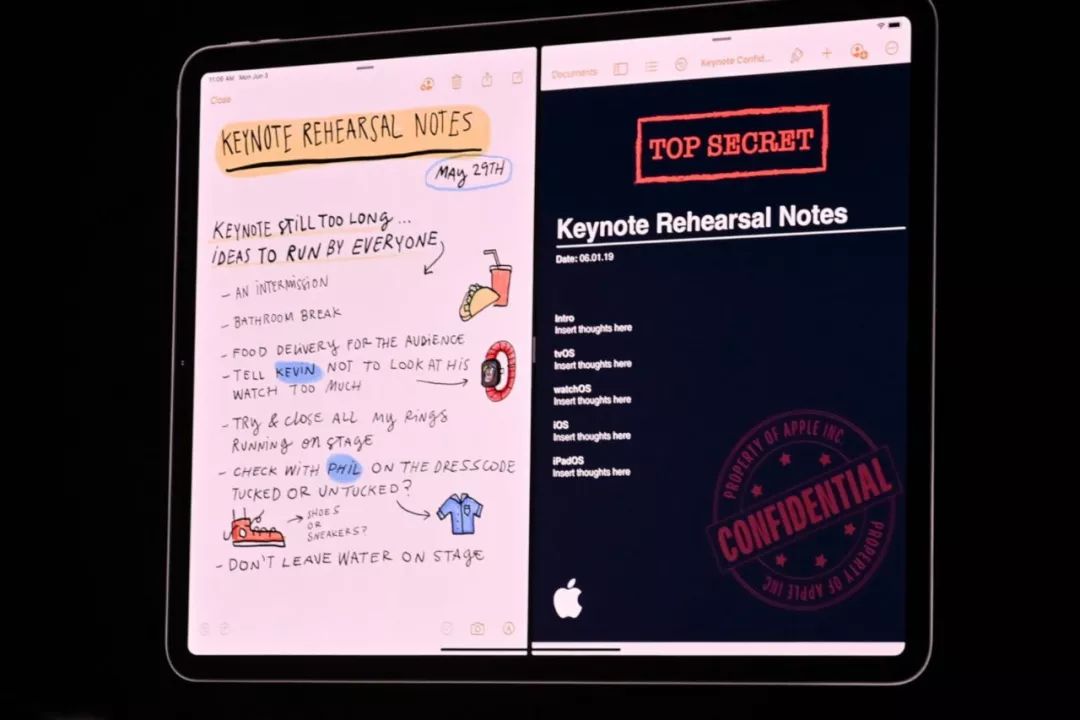 11:06 AM Mon Jun 3
Close
KEYNOTE REHEARSAL NOTES
MAY 29TH
KEYNOTE STILL TOO LONG...
IDEAS TO RUN BY EVERYONE
- AN INTERMISSION
- BATHROOM BREAK
- FOOD DELIVERY FOR THE AUDIENCE
- TELL KEVIN NOT TO LOOK AT HIS
WATCH TOO MUCH
- TRY & CLOSE ALL MY RINGS
RUNNING ON STAGE
- CHECK WITH PHIL ON THE DRESSCODE
TUCKED OR UNTUCKED?
SHOES
OR
SNEAKERS?
- DON'T LEAVE WATER ON STAGE
Documents
Keynote Confid...
TOP SECRET
Keynote Rehearsal Notes
Date: 06.01.19
Intro
Insert thoughts here
tvOS
Insert thoughts here
watchOS
Insert thoughts here
iOS
Insert thoughts here
iPadOS
Insert thoughts here
PROPERTY OF APPLE INC
CONFIDENTIAL
PROPERTY OF APPLE INC